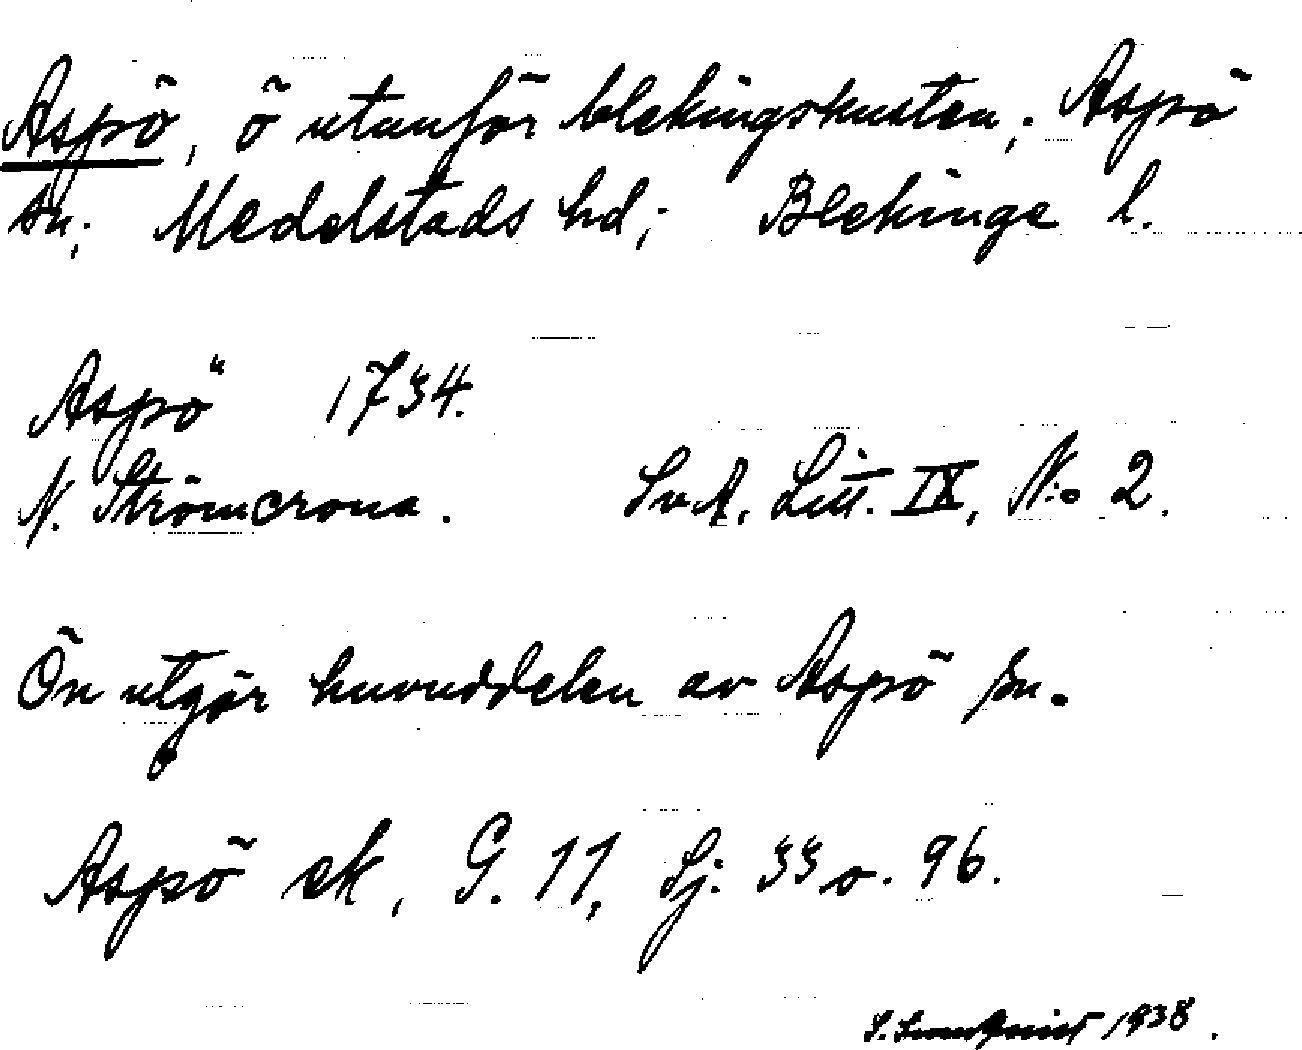 Aspö, ö utanför blekingskusten; Aspö
sn; Medelstads hd; Blekinge l.
Aspö 1734.
N. Strömcrona. SvA, Litt. IX, N:o 2.
Ön utgör huvuddelen av Aspö sn.
Aspö ek, G. 11, Sj. 33 o. 96.
1938.